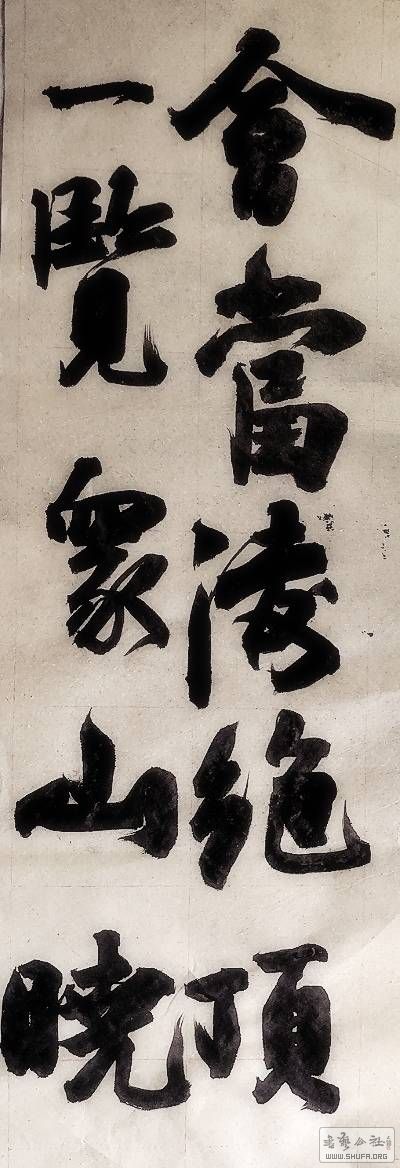 會當淩絶頂
一覽眾山曉
書藝公社
WWW.SHUFA.ORG